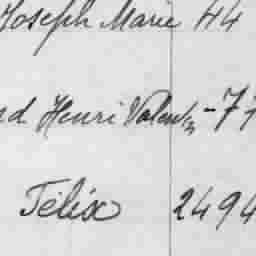 Joseph Marie 44
Henri Valentin - 77
Félix 2494